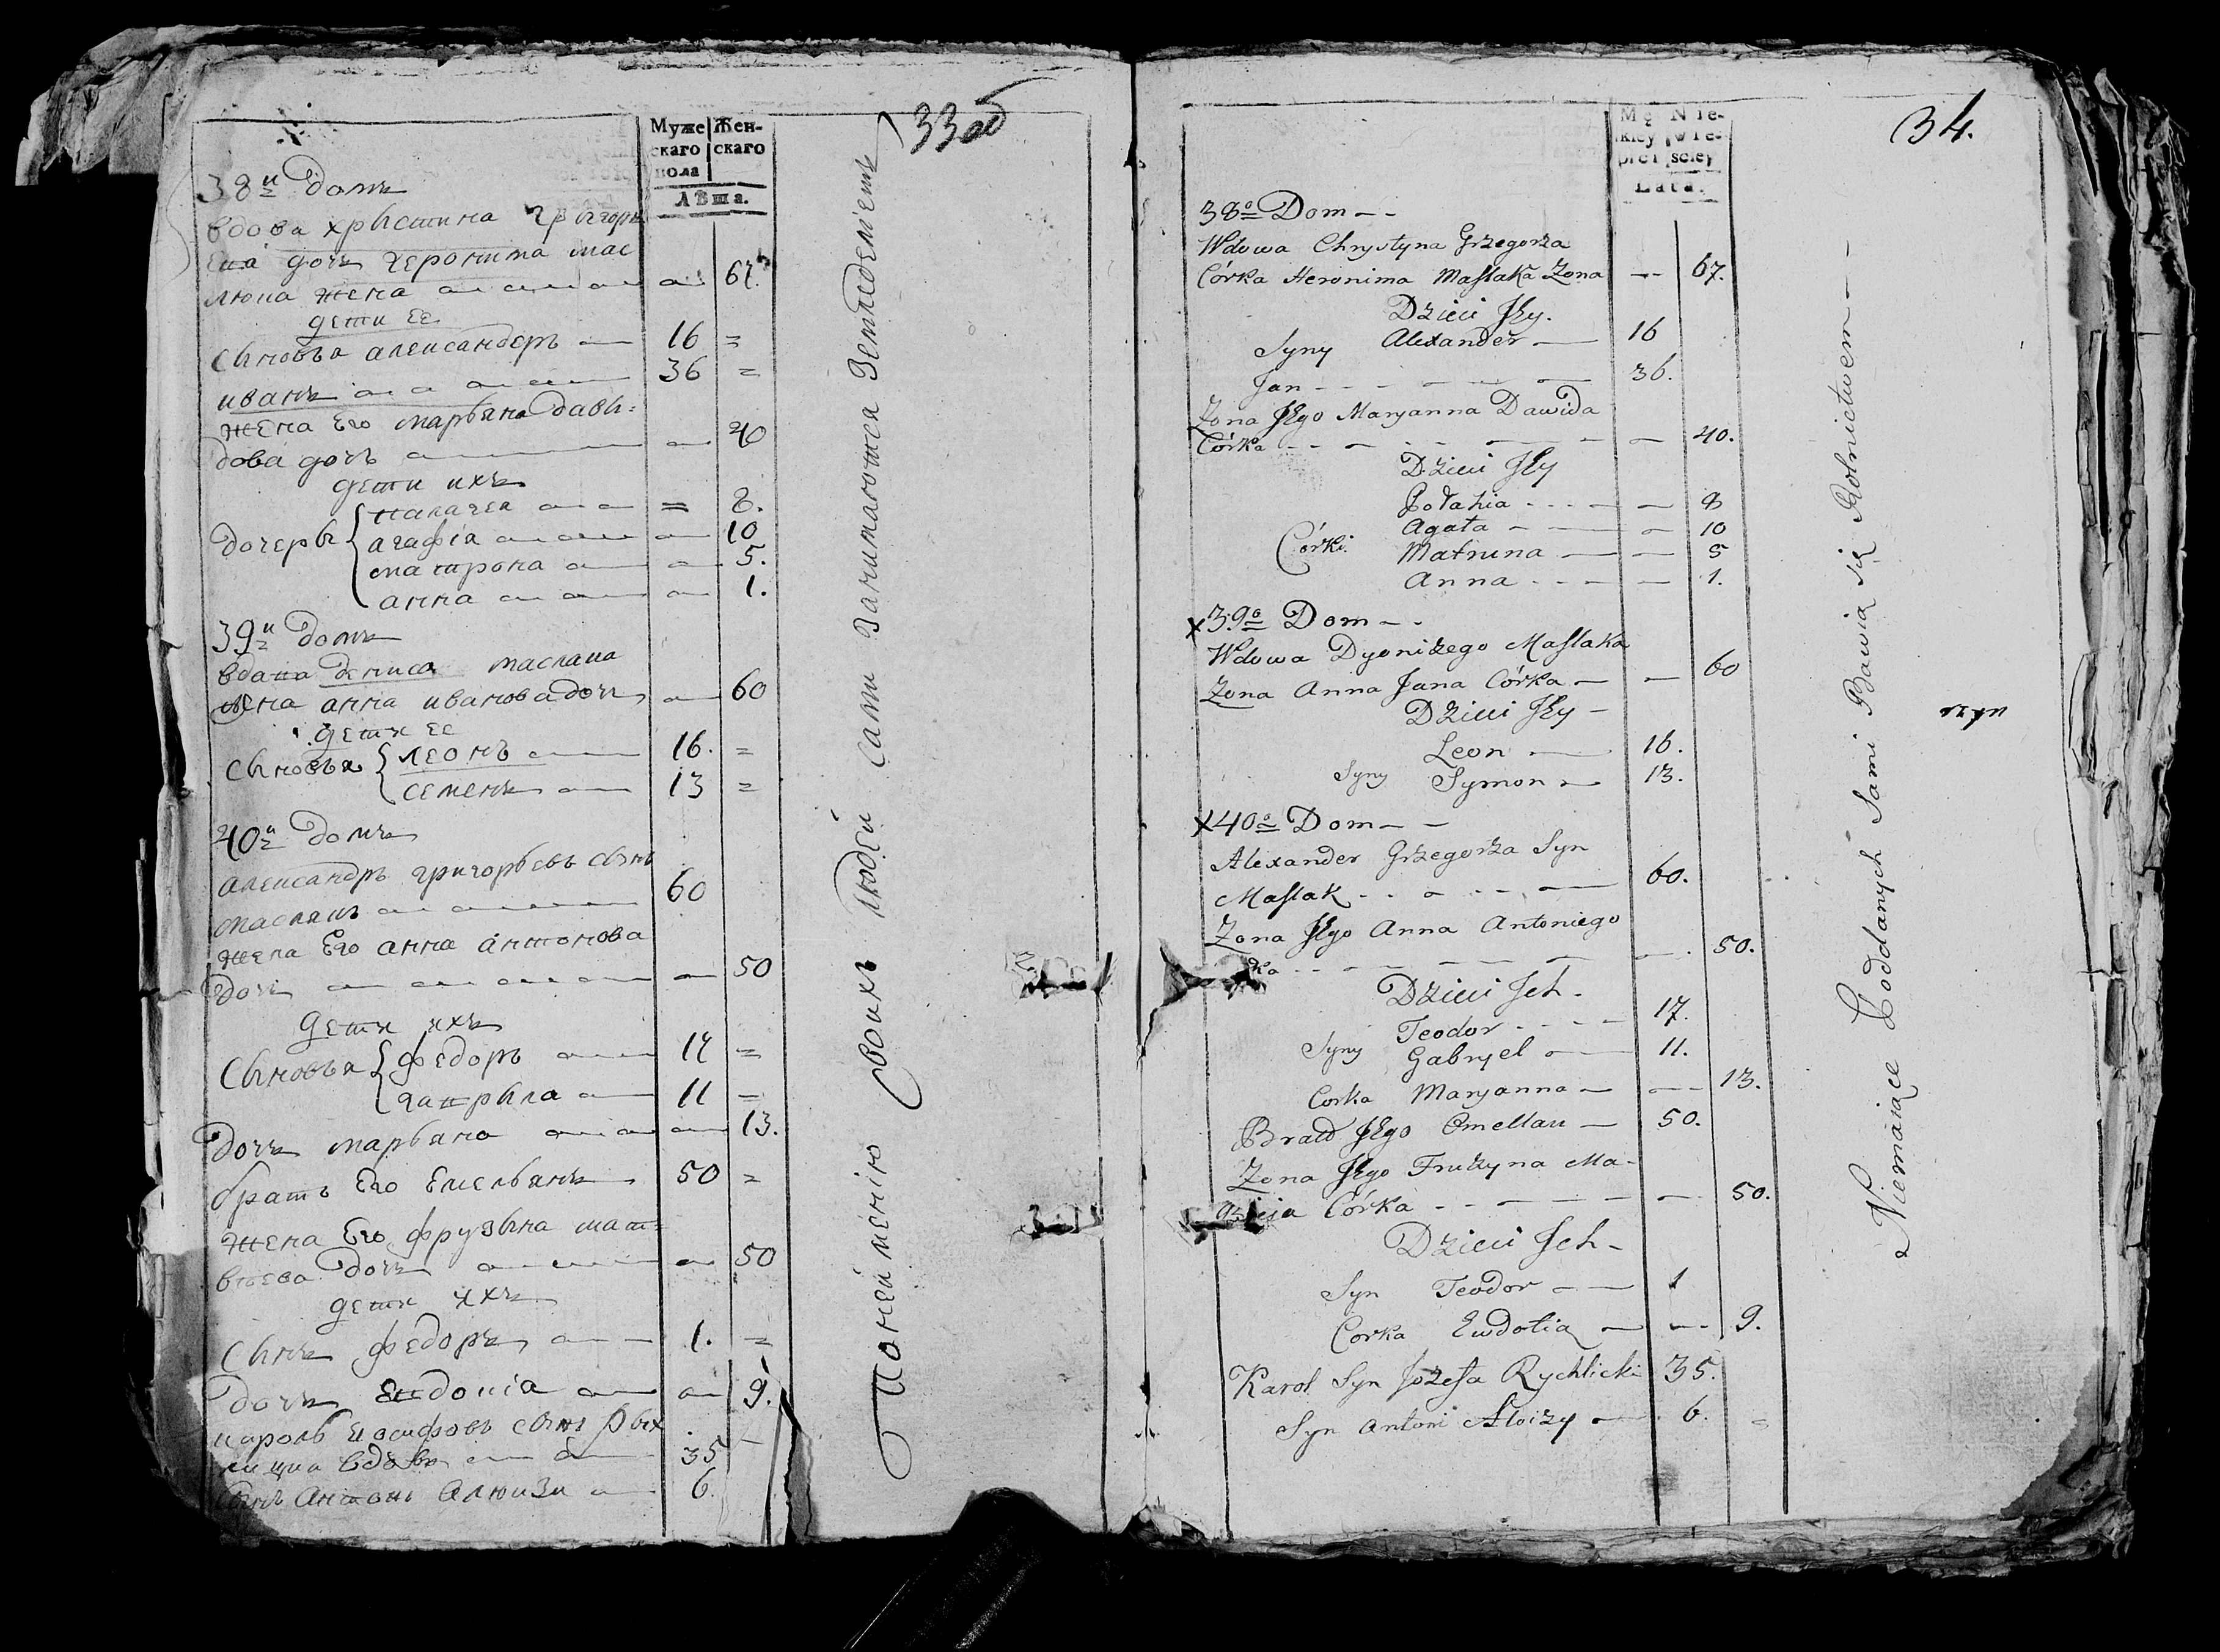 33 об
Муже Жен-
скаго скаго
пола
Лѣта.
38й Домъ
вдова хрыстина григорь
ева дочь геронима мас
люка жена 67.
дети ее
Сыновья александеръ 16
иванъ 36
жена Его марьяна давы:
дова дочь 40
дети ихъ
дочеры
палагея 8.
агафія 10
матрона 5.
анна 1.
39й Домъ
вдова дениса маслака
жена анна иванова дочь 60
дети ее
Сыновья леонъ 16.
семенъ 13
40й Домъ
александръ григорьевъ сынъ
маслякъ 60
жена Его анна антонова
дочь 50
дети ихъ
Сыновья федоръ 17
гаврыла 11
дочь марьяна 13.
братъ Его Емельянъ 50
жена Его фрузына мат=
вѣева дочь 50
дети ихъ
Сынъ федоръ 1.
дочь Евдокіа 9.
кароль иосифовъ сынъ Рых
лицки вдовъ 35
Сынъ антонъ алюизи 6.
Понеименію Своихъ людей сами занимаются Земледелiемъ
34.
Mę Nie-
skiey wie-
płci sciey
Lata.
38o Dom - -
Wdowa Chrystyna Grzegorza
Córka Heronima Maslaka Zona 67.
Dzieci Jey.
Syny Alexander 16
Jan 36.
Zona Jego Maryanna Dawida
Córka 40.
Dzieci Jey
Połahia 8
Córki. Agata 10
Matruna 5
Anna 1.
x 39o Dom - -
Wdowa Dyonizego Maslaka
Zona Anna Jana Córka 60
Dzieci Jey -
Leon 16.
Syny Symon 13.
x 40o Dom - -
Alexander Grzegorza Syn
Maslak 60.
Zona Jego Anna Antoniego
ka 50.
Dzieci Ich -
Teodor 17.
Syny Gabryel 11.
Corka Maryanna 13.
Bratd Jego Omellan 50.
Zona Jego Fruzyna Ma-
Córka 50.
Dzieci Ich -
Syn Teodor 1
Corka Ewdotia 9.
Karol Syn Jozefa Rychlicki 35.
Syn Antoni Aloizy 6.
Niemaiące Poddanych Sami Bawią się Rolnictwem - -